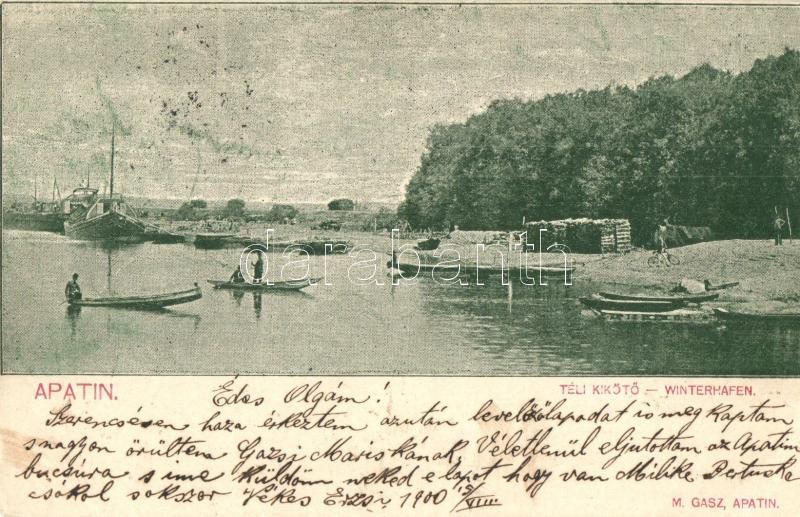 darabanth
APATIN.
TÉLI KIKÖTŐ — WINTERHAFEN.
Édes Olgám!
Szerencsésen haza érkeztem azután levelezőlapodat is meg kaptam
s nagyon örültem Gazsi Mariskának, Véletlenül eljutottam az Apatini
bucsura s ime küldöm neked e lapot hogy van Milike
csókol sokszor Vékes Erzsi 1900
M. GASZ, APATIN.